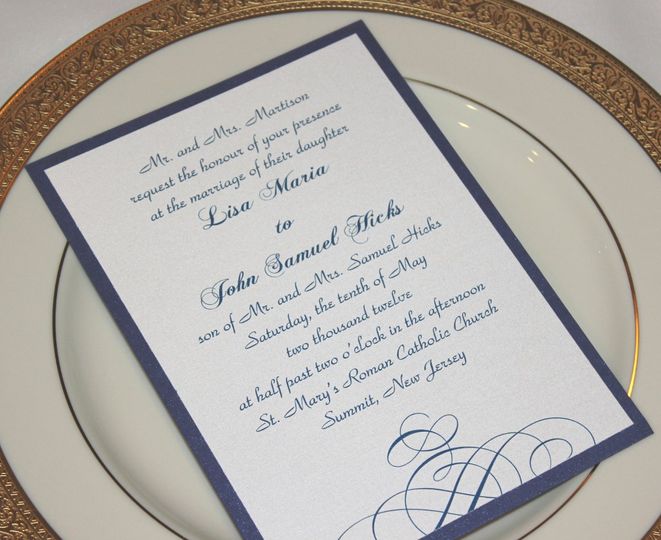 Mr. and Mrs. Martison
request the honour of your presence
at the marriage of their daughter
Lisa Maria
to
John Samuel Hicks
son of Mr. and Mrs. Samuel Hicks
Saturday, the tenth of May
two thousand twelve
at half past two o'clock in the afternoon
St. Mary's Roman Catholic Church
Summit, New Jersey